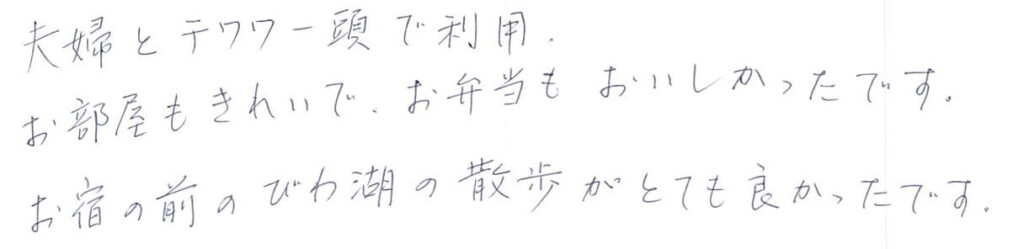 夫婦とチワワ一頭で利用.
お部屋もきれいで、お弁当もおいしかったです。
お宿の前のびわ湖の散歩がとても良かったです.